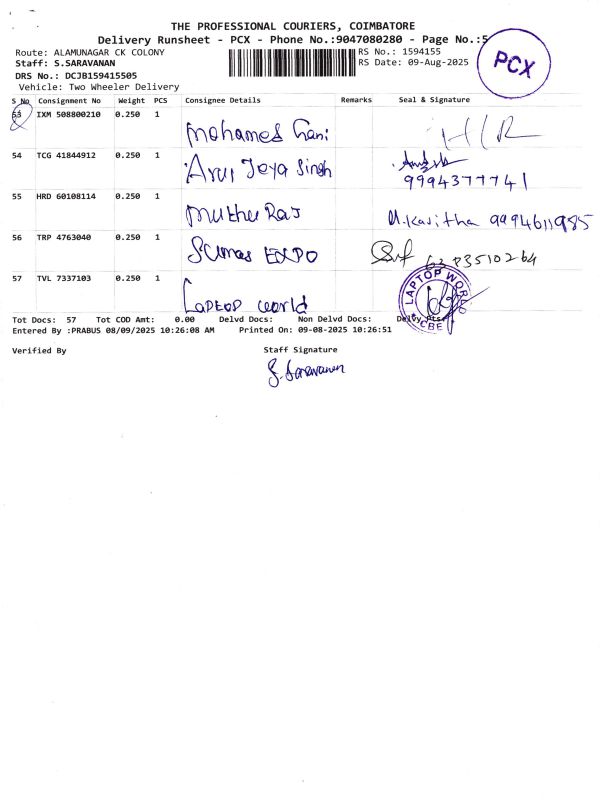 THE PROFESSIONAL COURIERS, COIMBATORE
Delivery Runsheet - PCX - Phone No.:9047080280 - Page No.:5
PCX
Route: ALAMUNAGAR CK COLONY
RS No.: 1594155
Staff: S.SARAVANAN
RS Date: 09-Aug-2025
DRS No.: DCJB159415505
Vehicle: Two Wheeler Delivery
S No Consignment No Weight PCS Consignee Details Remarks Seal & Signature
53 IXM 508800210 0.250 1 Mohamed Gani
54 TCG 41844912 0.250 1 Arul Jeya Singh 9994377741
55 HRD 60108114 0.250 1 Muthu Raj M.Kavitha 9994611985
56 TRP 4763040 0.250 1 EXPO
57 TVL 7337103 0.250 1 Laptop world
LAPTOP WORLD CBE
Tot Docs: 57 Tot COD Amt: 0.00 Delvd Docs: Non Delvd Docs:
Entered By :PRABUS 08/09/2025 10:26:08 AM Printed On: 09-08-2025 10:26:51
Verified By Staff Signature
S. Saravanan